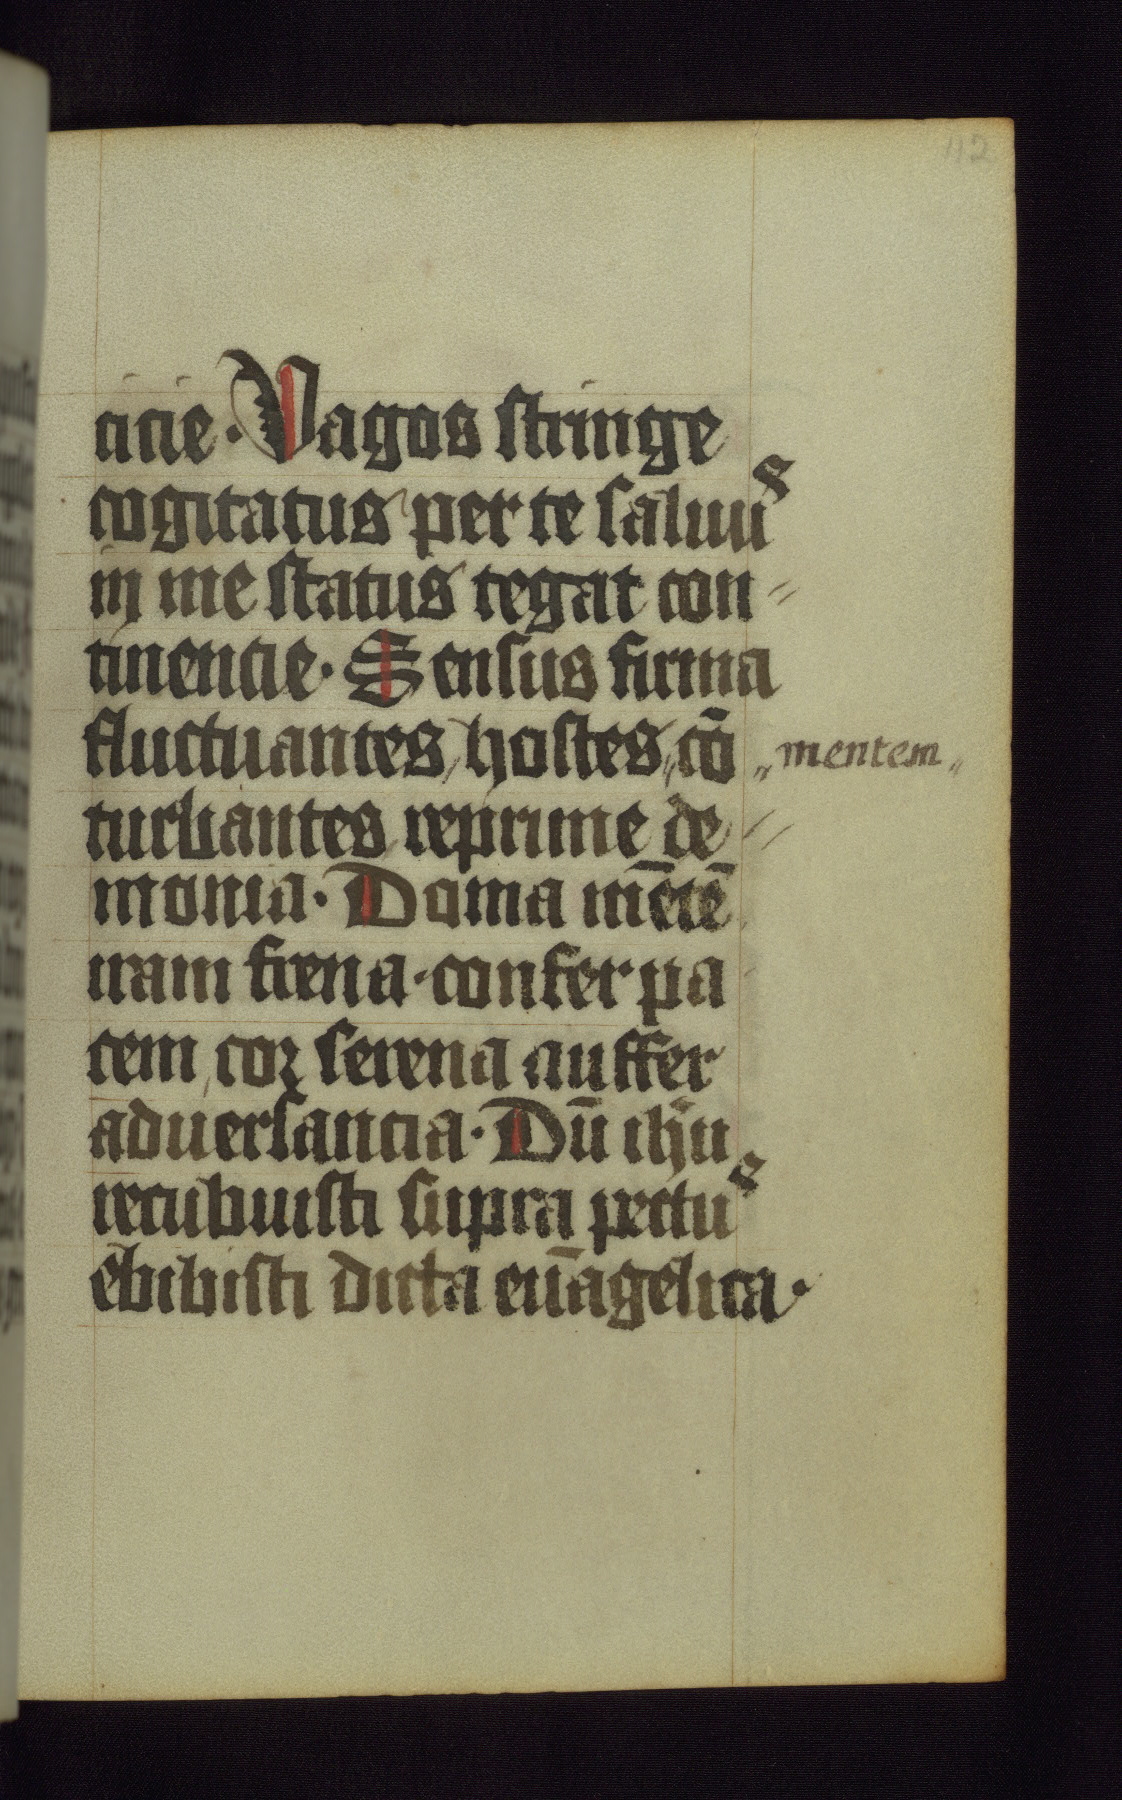 112
cicie. Vagos stringe
cogitatus per te saluus
in me status tegat con
tinencie. Sensus firma
fluctuantes hostes cō
mentem
turbantes reprime de
monia. Doma mētē
iram frena. confer pa
cem cor serena auffer
aduersancia. Dū ihū
recubuisti supra pectus
ebibisti dicta euāgelica.